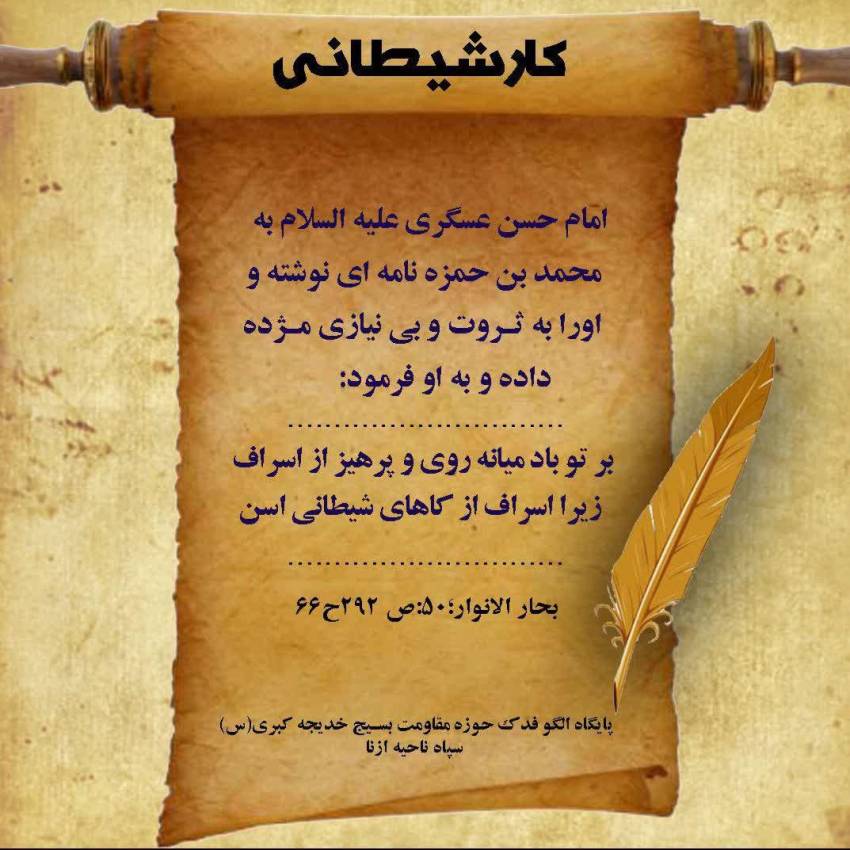 کارشیطانی
امام حسن عسگری علیه السلام به
محمد بن حمزه نامه ای نوشته و
اورا به ثـروت و بی نیازی مـژده
داده و به او فرمود:
..............................
بر تو باد میانه روی و پرهیز از اسراف
زیرا اسراف از کاهای شیطانی اسن
..............................
بحار الانوار؛۵۰:ص ۲۹۲ح۶۶
پایگاه الگو فدک حوزه مقاومت بسیج خدیجه کبری(س)
سپاه ناحیه ازنا